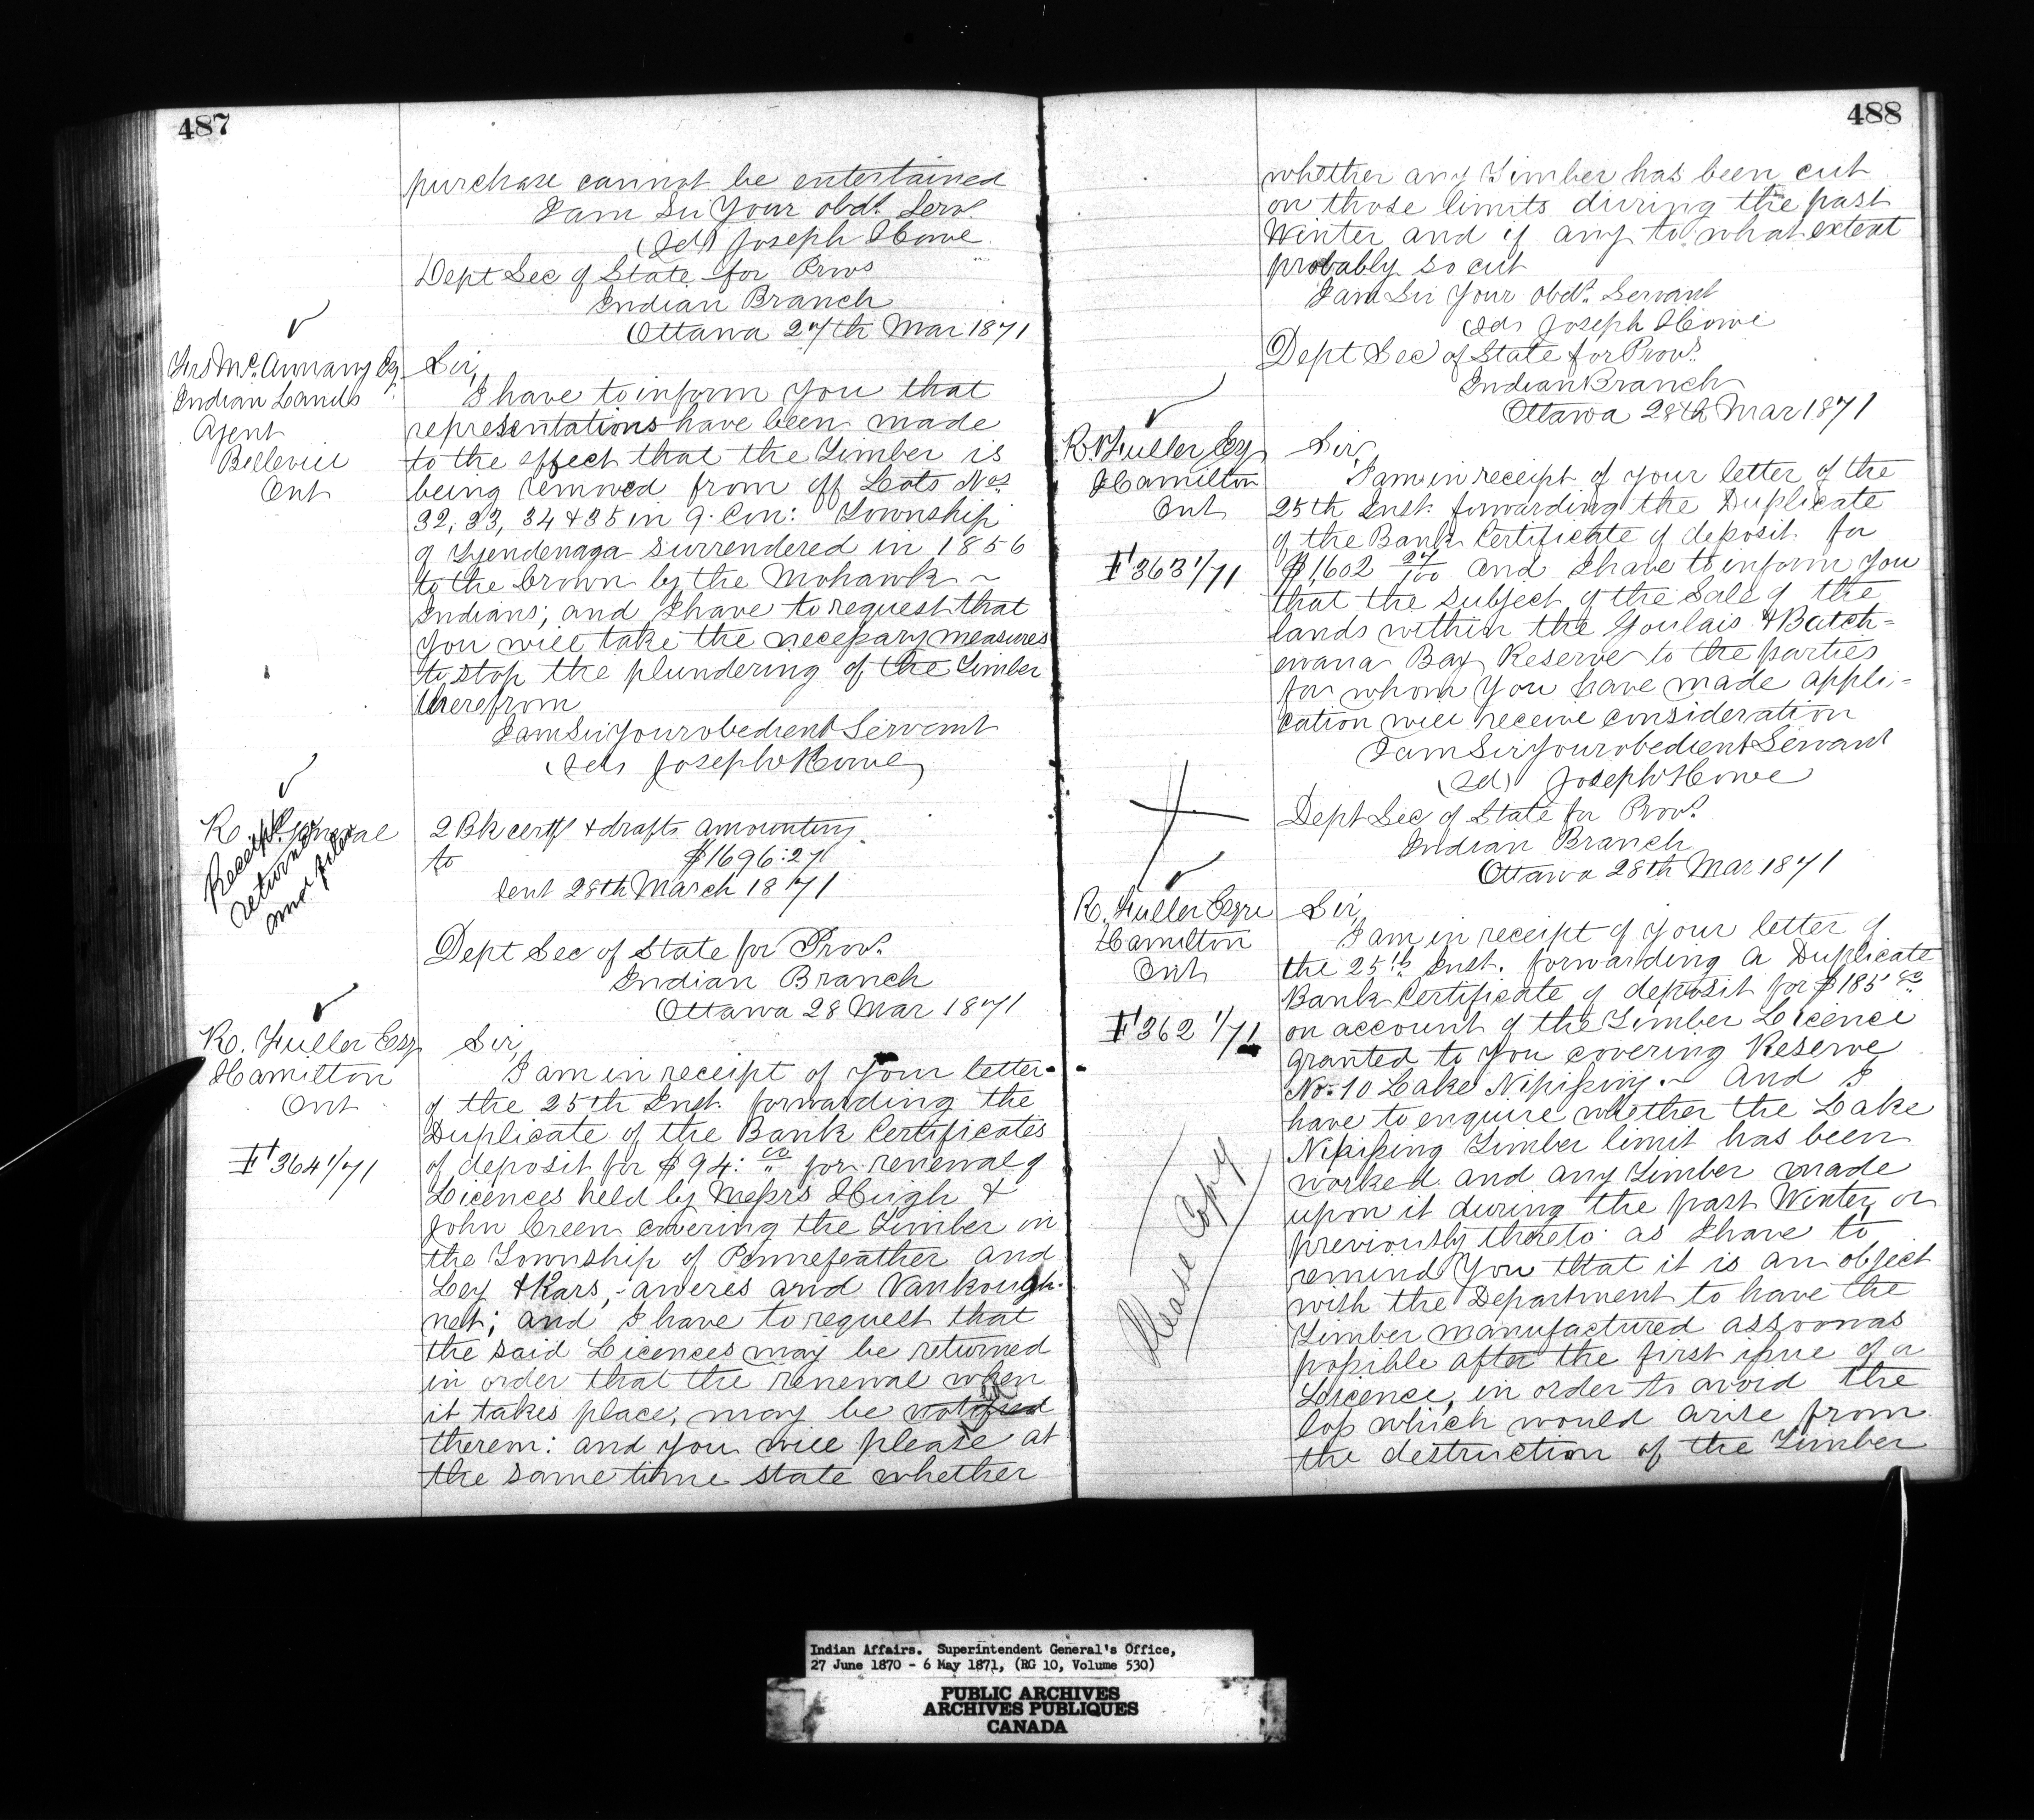 487
purchase cannot be entertained
I am Sir Your obdt. Servt.
(Sd) Joseph Howe
Dept Sec of State for Provs
Indian Branch
Ottawa 27th Mar 1871
McAnnany Esq.
Indian Lands
Agent
Bellevill
Ont
Sir,
I have to inform you that
representations have been made
to the effect that the Timber is
being removed from off Lots Nos
32, 33, 34 & 35 in 9. Con: Township
of Tyendenaga surrendered in 1856
to the Crown by the Mohawk ~
Indians; and I have to request that
you will take the necessary measures
to stop the plundering of the Timber
therefrom
I am Sir Your obedient Servant
(Sd) Joseph Howe
R. General
Receipt
returned
and filed
2 Bk certf & drafts amounting
to $1696:27
sent 28th March 1871
Dept Sec of State for Provs.
Indian Branch
Ottawa 28 Mar 1871
R. Fuller Esq
Hamilton
Ont
364 1/71
Sir,
I am in receipt of your letter
of the 25th Inst. forwarding the
Duplicate of the Bank Certificates
of deposit for $94: 00 for renewal of
Licences held by Messrs Hugh &
John Green covering the Timber in
the Township of Pennefeather and
Ley & Kars, Aweres and Vankough-
net; and I have to request that
the said Licences may be returned
in order that the renewal when
it takes place, may be
therein: and you will please at
the same time state whether
488
whether any Timber has been cut
on those limits during the past
Winter and if any to what extent
probably so cut
I am Sir Your obdt. Servant
(Sd) Joseph Howe
Dept Sec of State for Provs.
Indian Branch
Ottawa 28th Mar 1871
R. Fuller Esq
Hamilton
Ont
363 1/71
Sir,
I am in receipt of your letter of the
25th Inst. forwarding the Duplicate
of the Bank Certificate of deposit for
$1,602 27/100 and I have to inform you
that the subject of the Sale of the
lands within the Goulais & Batch-
ewana Bay Reserve to the parties
for whom you have made appli-
cation will receive consideration
I am Sir Your obedient Servant
(Sd) Joseph Howe
Dept Sec of State for Provs.
Indian Branch
Ottawa 28th Mar 1871
R. Fuller Esqre
Hamilton
Ont
362 1/71
Please Copy
Sir,
I am in receipt of your letter of
the 25th Inst. forwarding a Duplicate
Bank Certificate of deposit for $185
on account of the Timber Licence
granted to you covering Reserve
No. 10 Lake Nipissing ~ And I
have to enquire whether the Lake
Nipissing Timber limit has been
worked and any Timber made
upon it during the past Winter, or
previously thereto as I have to
remind you that it is an object
with the Department to have the
Timber manufactured as soon as
possible after the first issue of a
Licence, in order to avoid the
loss which would arise from
the destruction of the Timber
Indian Affairs. Superintendent General's Office,
27 June 1870 - 6 May 1871, (RG 10, Volume 530)
PUBLIC ARCHIVES
ARCHIVES PUBLIQUES
CANADA